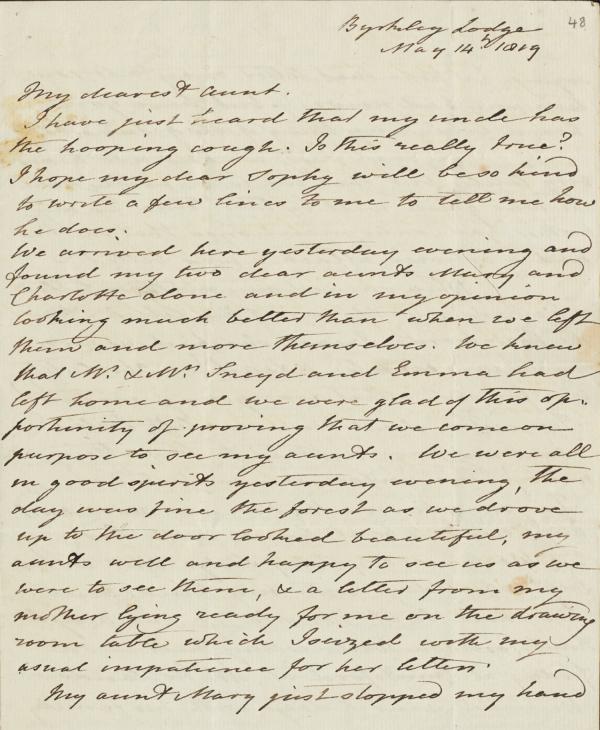 48
Byrkley Lodge
May 14th 1819
My dearest aunt.
I have just heard that my uncle has
the hooping cough. Is this really true?
I hope my dear Sophy will be so kind
to write a few lines to me to tell me how
he does.
We arrived here yesterday evening and
found my two dear aunts Mary and
Charlotte alone and in my opinion
looking much better than when we left
them and more themselves. We knew
that Mr. & Mrs Sneyd and Emma had
left home and we were glad of this op-
portunity of proving that we come on
purpose to see my aunts. We were all
in good spirits yesterday evening, the
day was fine the forest as we drove
up to the door looked beautiful, my
aunts well and happy to see us as we
were to see them, & a letter from my
mother lying ready for me on the drawing
room table which I seized with my
usual impatience for her letters.
My aunt Mary just stopped my hand